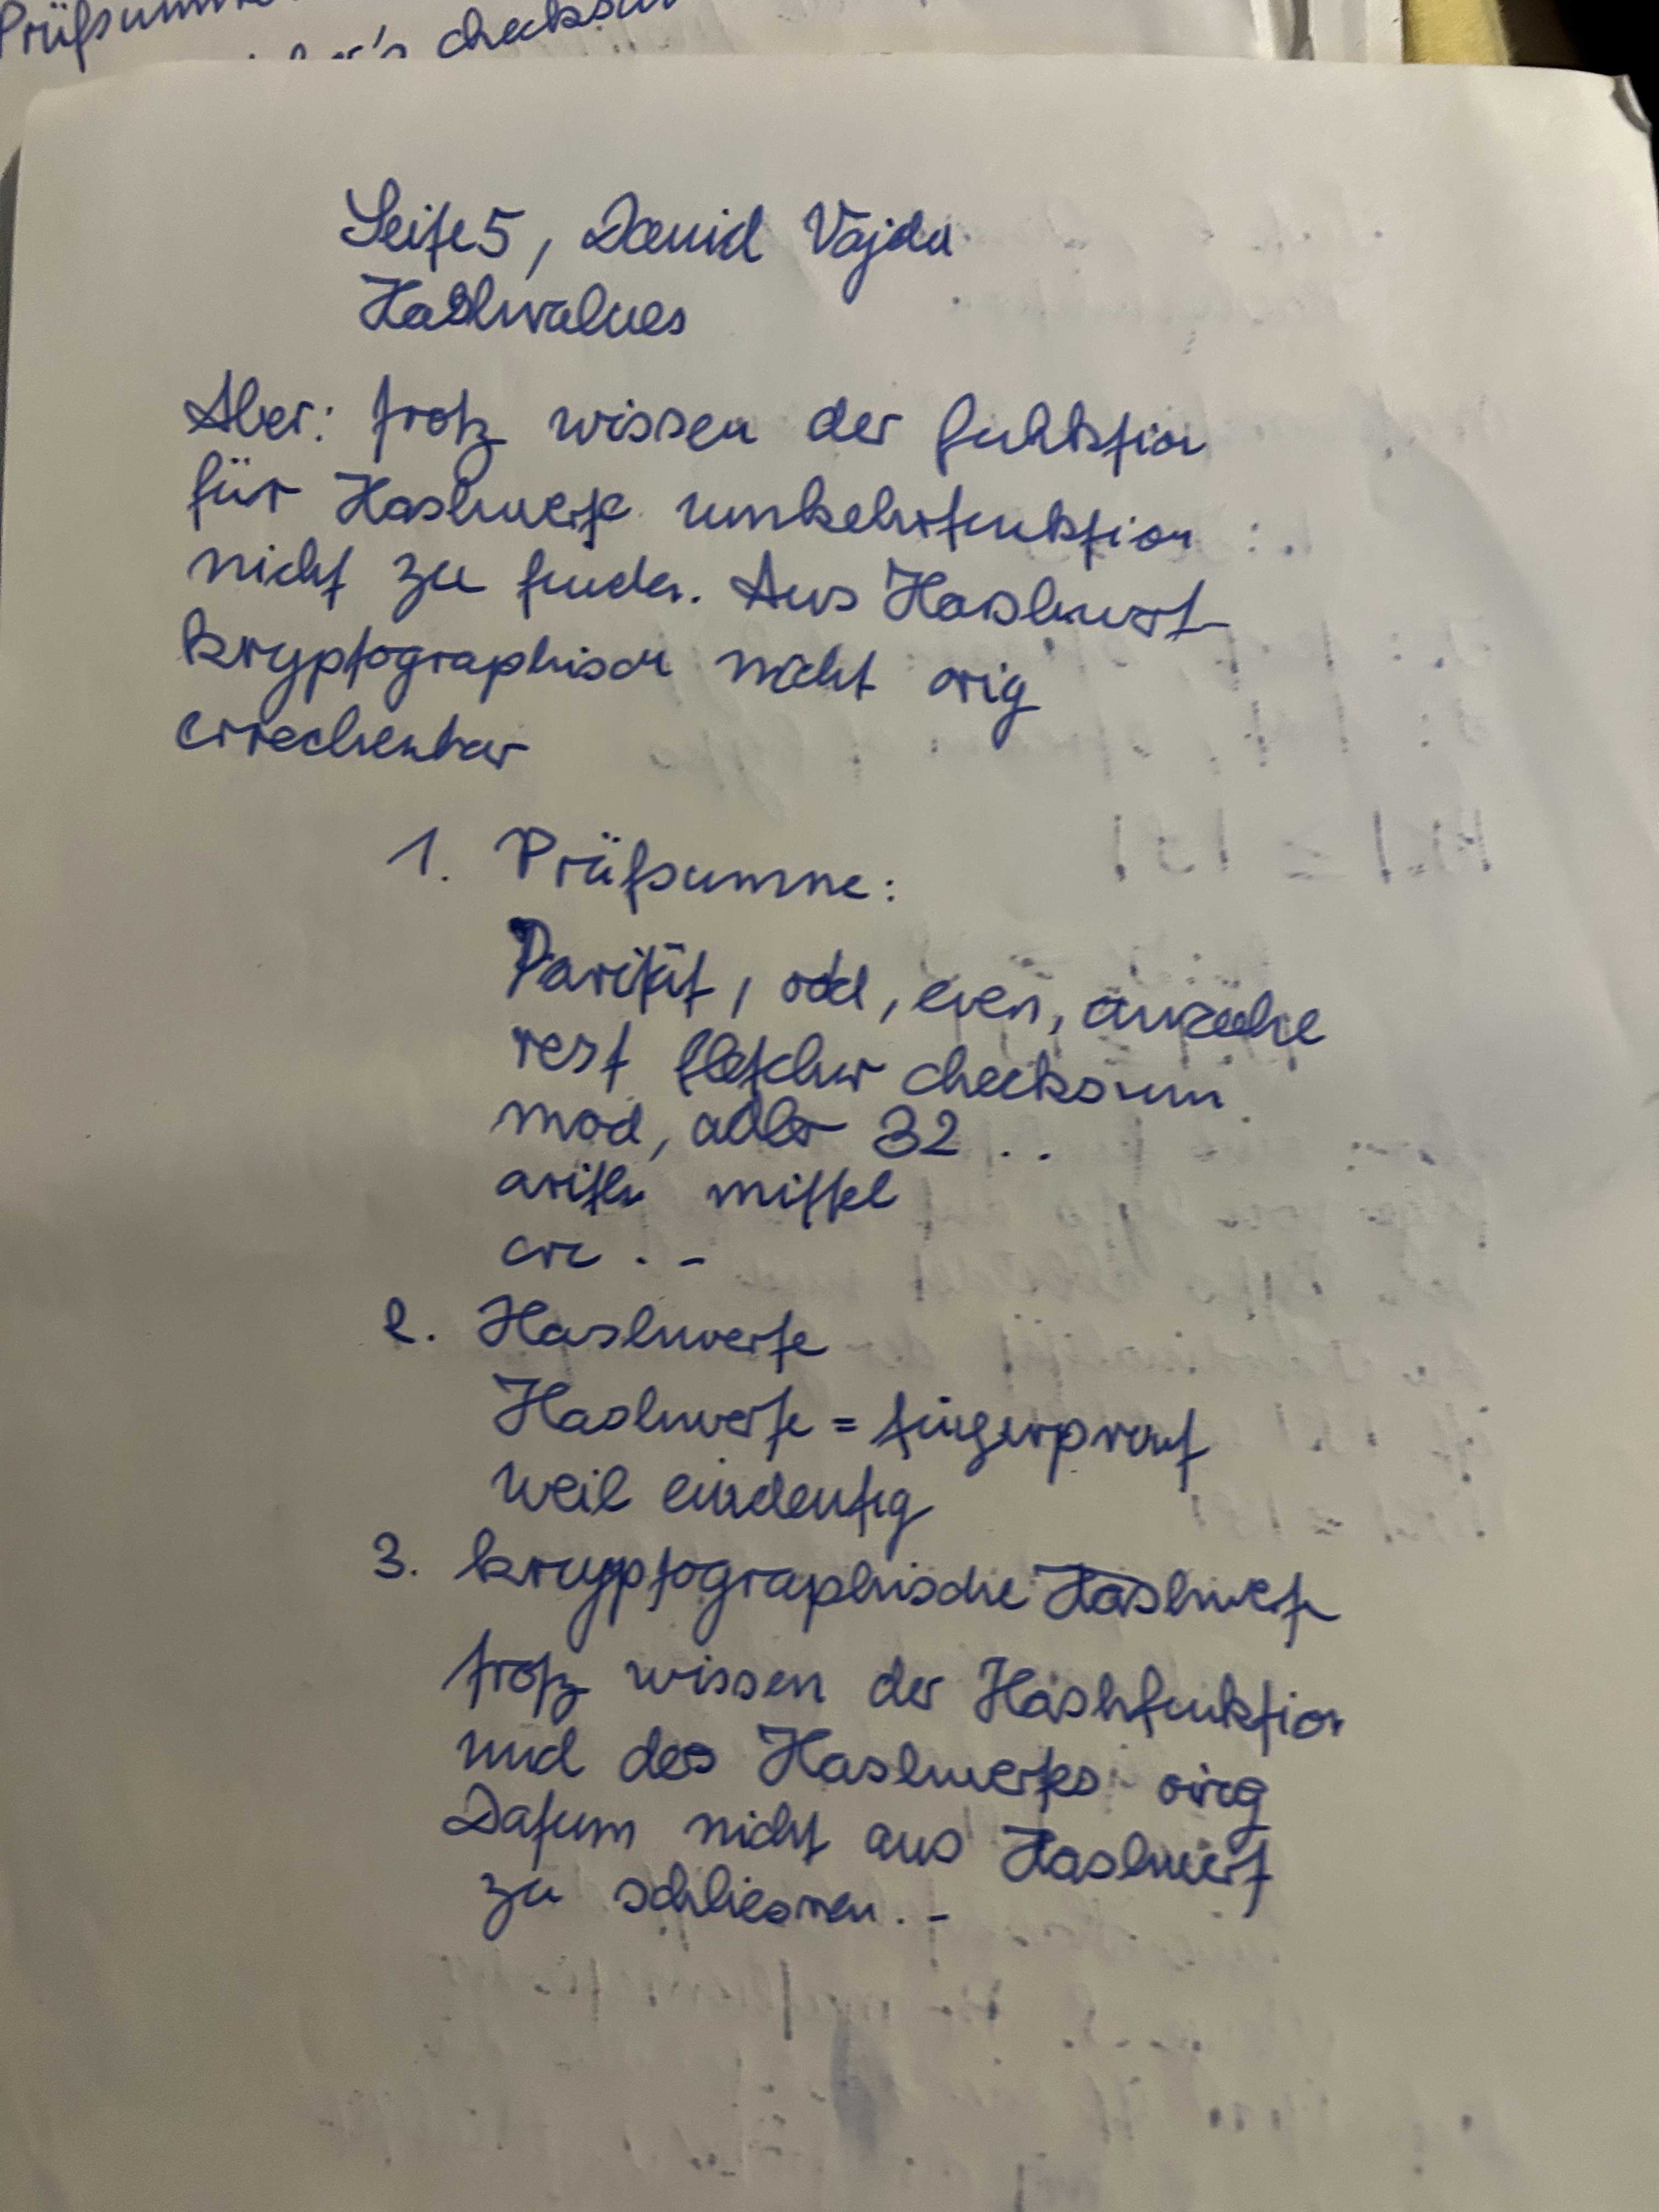 Prüfsumme
checksum
Seite 5, David Vajda
Hashvalues
Aber: trotz wissen der funktion
für Hashwerte umkehrfunktion
nicht zu finden. Aus Hashwert
kryptographisch nicht orig
errechenbar
1. Prüfsumme:
Parität, odd, even,
rest fletcher checksum
mod, adler 32 . .
arith mittel
crc . -
2. Hashwerte
Hashwerte = fingerprint
weil eindeutig
3. kryptographische Hashwerte
trotz wissen der Hashfunktion
und des Hashwertes oirg
Datum nicht aus Hashwert
zu schliessen. -